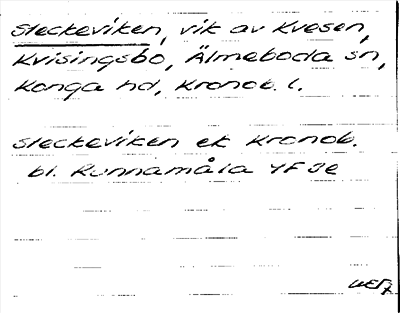 Sleckeviken, vik av Kvesen,
Kvisingsbo, Älmeboda sn,
Konga hd, Kronob. l.
Sleckeviken ek Kronob.
bl. Kunnamåla 4F 3e